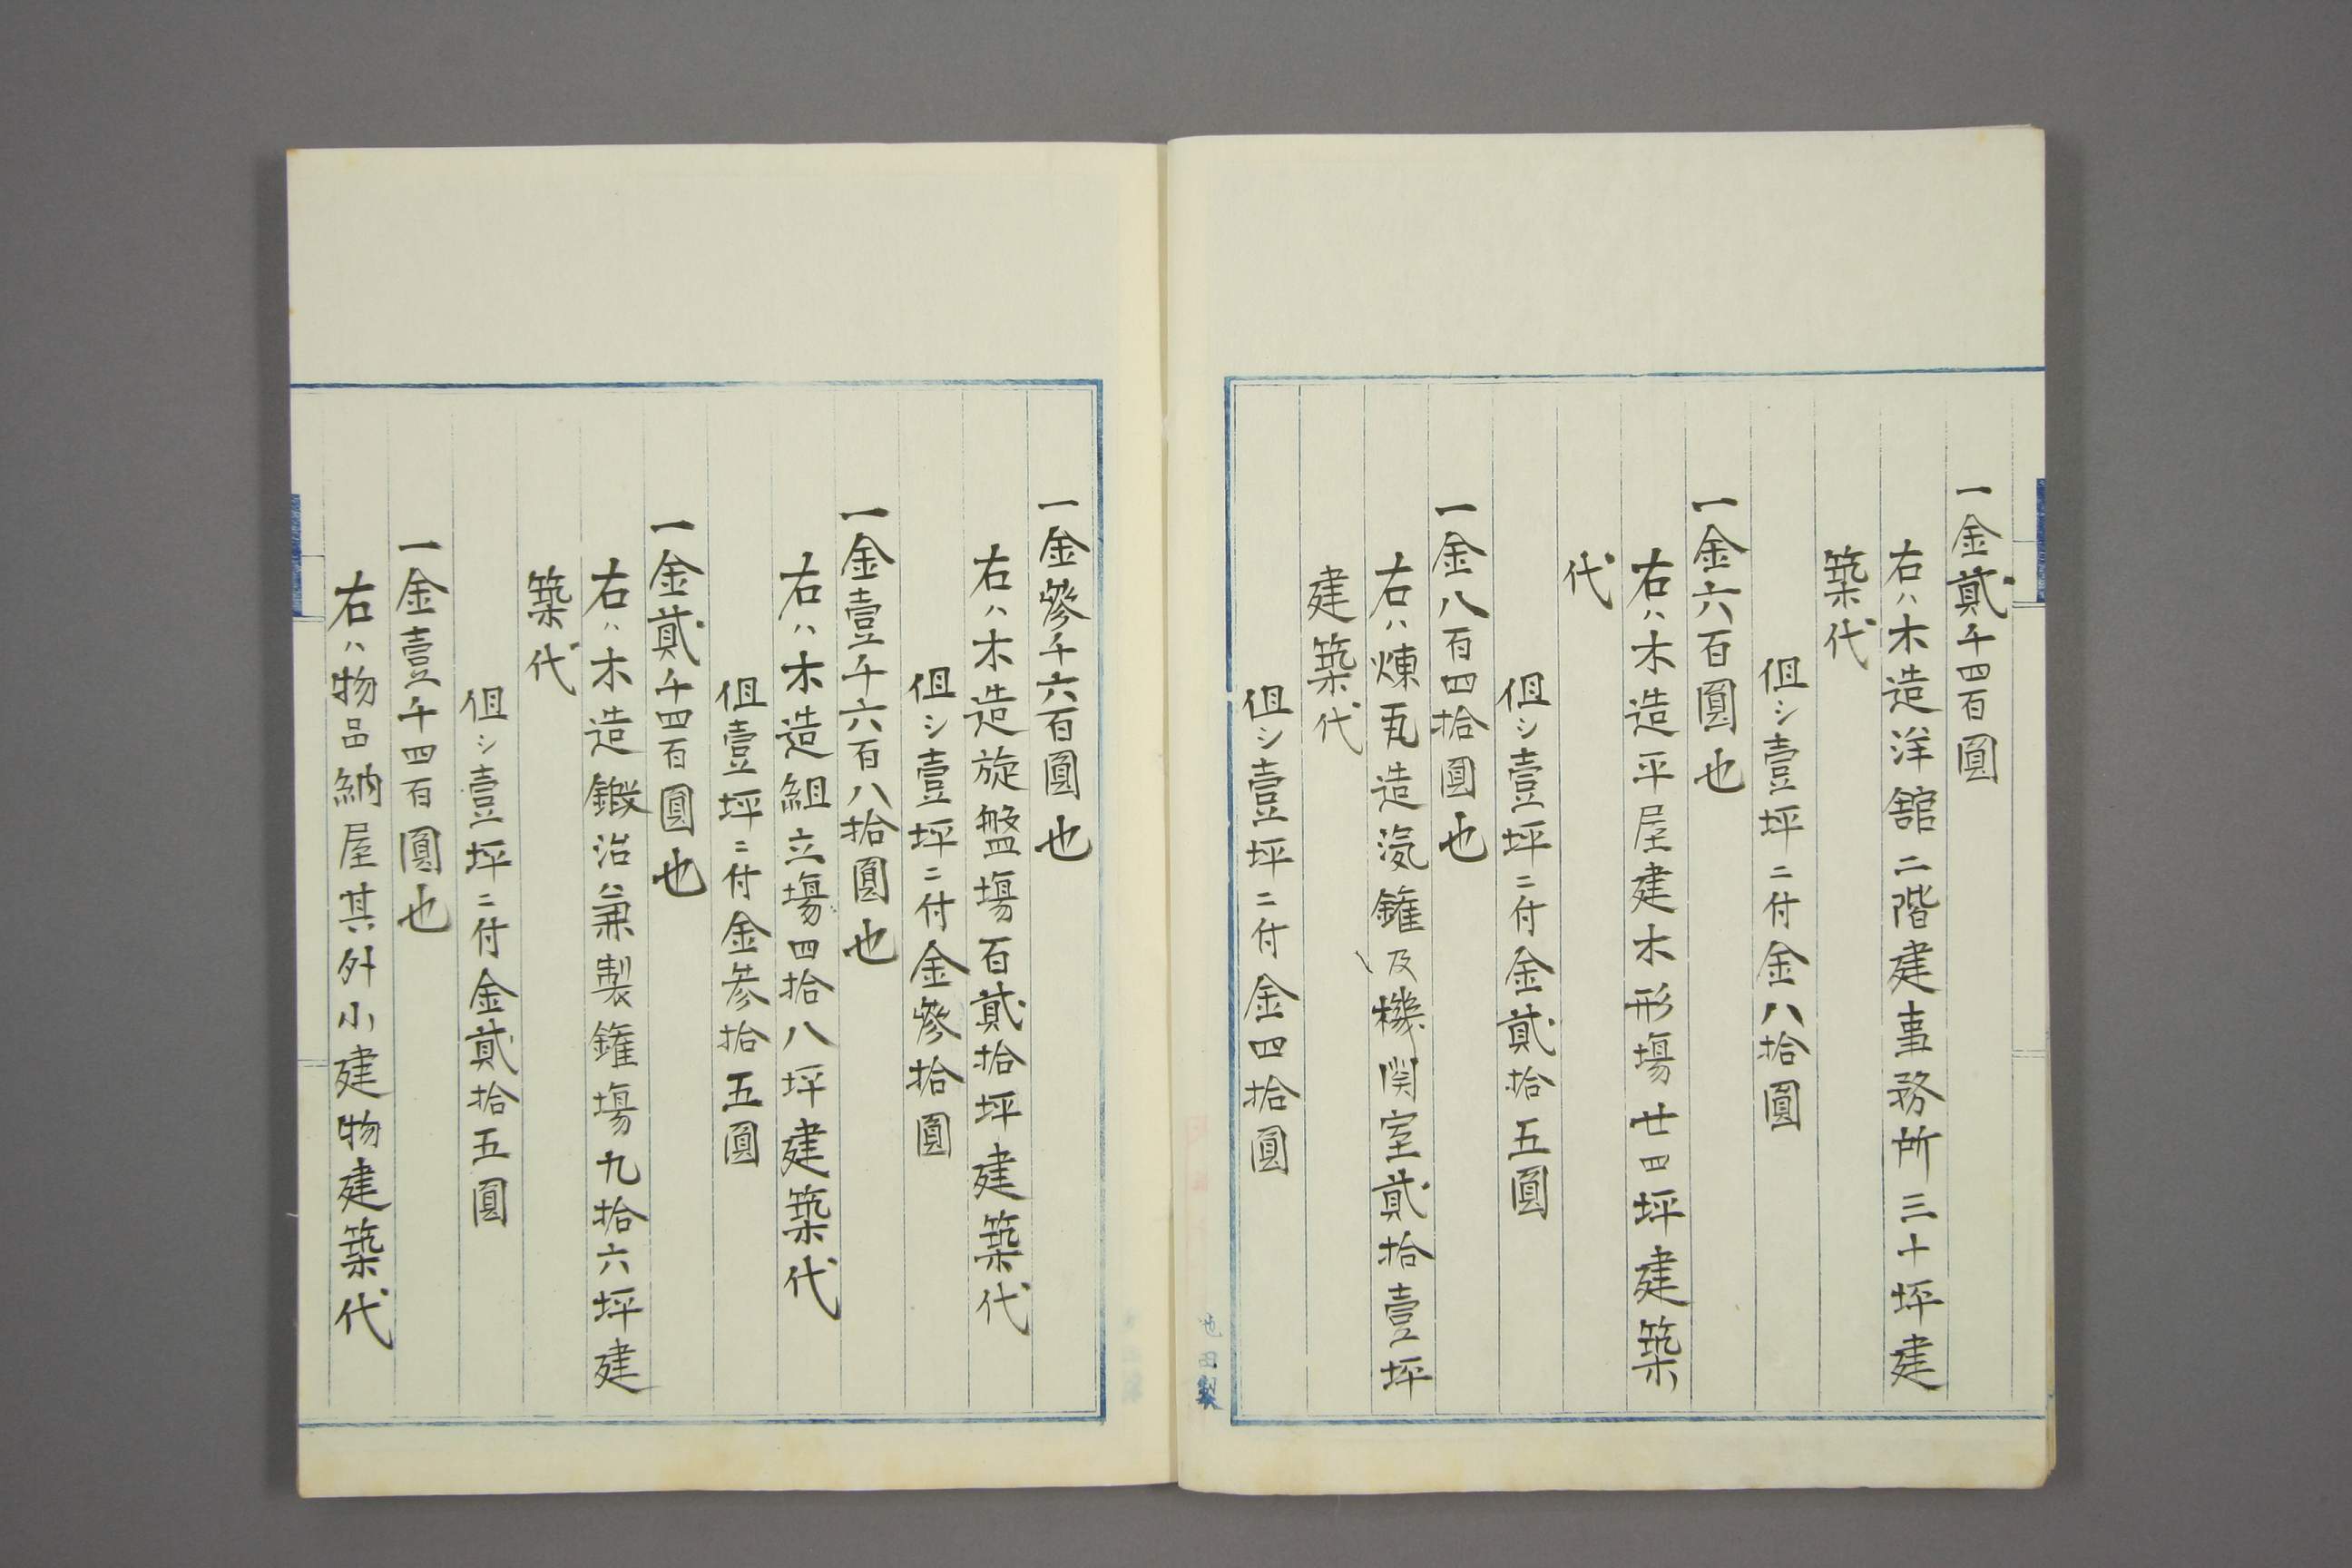 一金貳千四百圓
右ハ木造洋舘二階建事務所三十坪建
築代
但シ壹坪ニ付金八拾圓
一金六百圓也
右ハ木造平屋建木形塲廿四坪建築
代
但シ壹坪ニ付金貳拾五圓
一金八百四拾圓也
右ハ煉瓦造汽鑵及機関室貳拾壹坪
建築代
但シ壹坪ニ付金四拾圓
池田製
一金參千六百圓也
右ハ木造旋盤塲百貳拾坪建築代
但シ壹坪ニ付金參拾圓
一金壹千六百八拾圓也
右ハ木造組立塲四拾八坪建築代
但壹坪ニ付金参拾五圓
一金貳千四百圓也
右ハ木造鍛治兼製鑵塲九拾六坪建
築代
但シ壹坪ニ付金貳拾五圓
一金壹千四百圓也
右ハ物品納屋其外小建物建築代